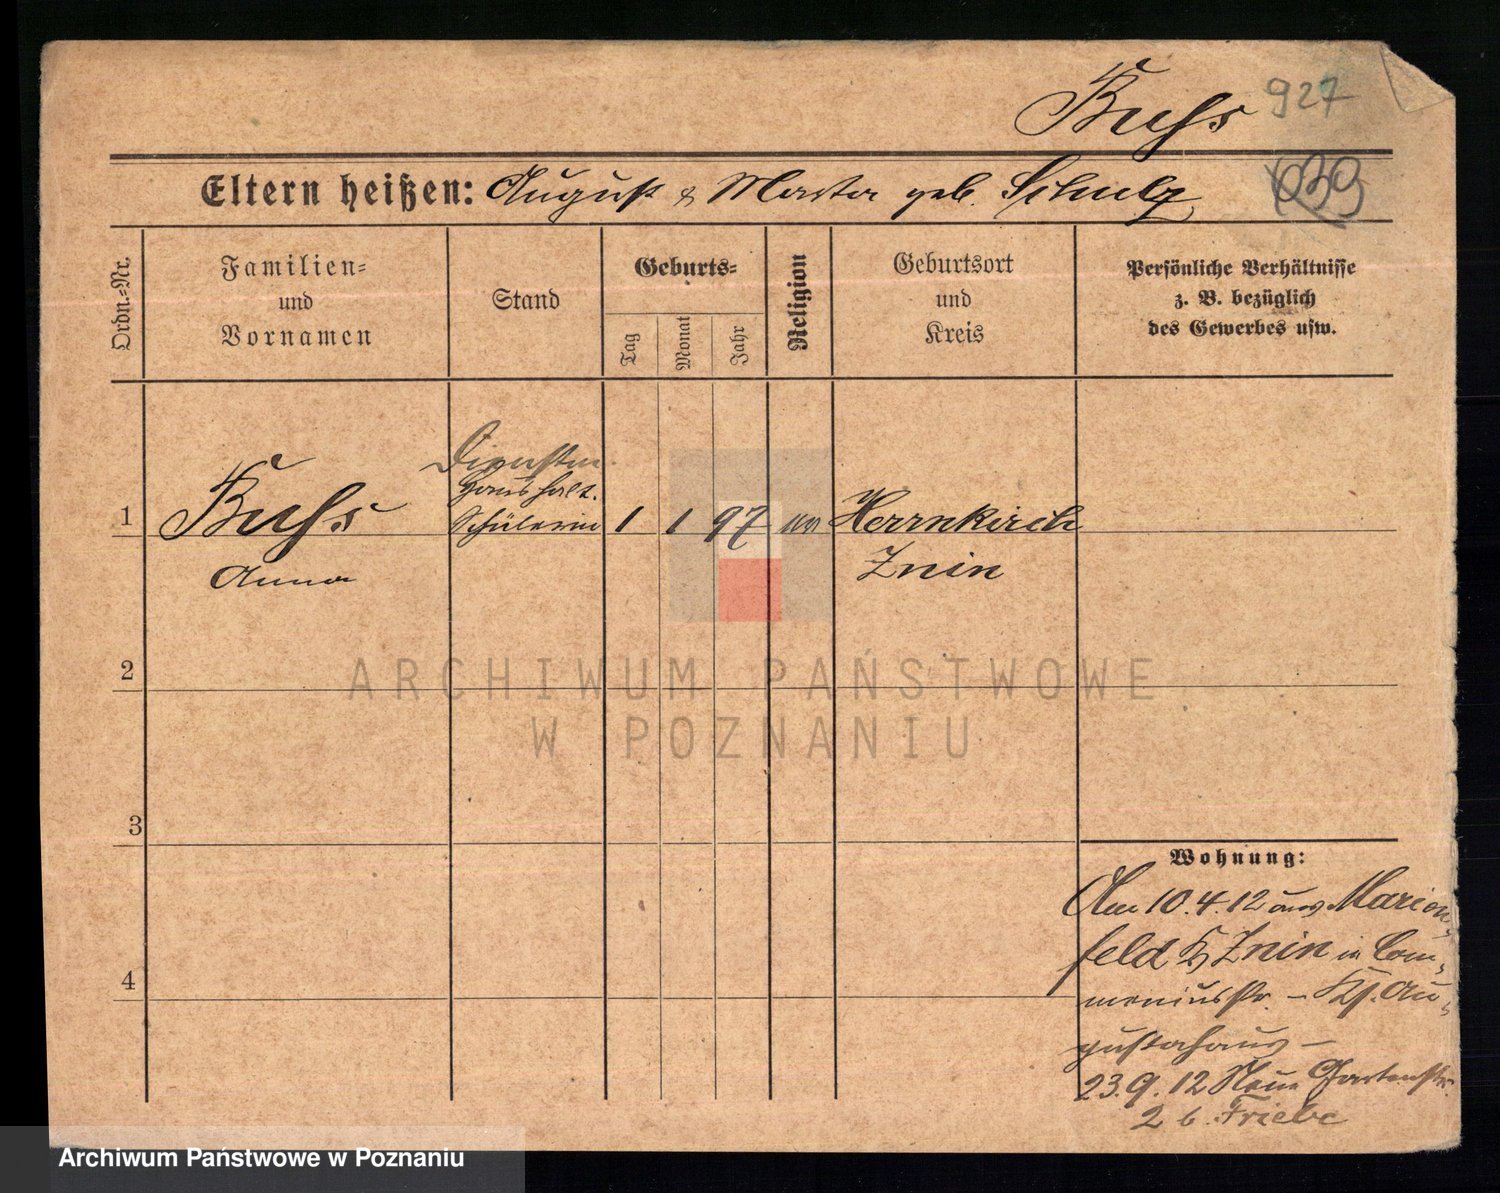 Buhs 927
Eltern heißen: August & Marta geb. Schulz 639
Ordn.-Nr.
Familien-
und
Vornamen
Stand
Geburts-
Tag
Monat
Jahr
Religion
Geburtsort
und
Kreis
Persönliche Verhältnisse
z. B. bezüglich
des Gewerbes usw.
Dienstm
Haushalt.
1 Buhs Schülerin 1 1 97 Herrnkirch
Anna Znin
2
ARCHIWUM PAŃSTWOWE
W POZNANIU
3
Wohnung:
Am 10.4.12 aus Marien-
feld Znin in Com-
meniusstr. – Au-
gustahaus –
4
23.9.12 Neue Gartenstr.
2 b. Friebe
Archiwum Państwowe w Poznaniu